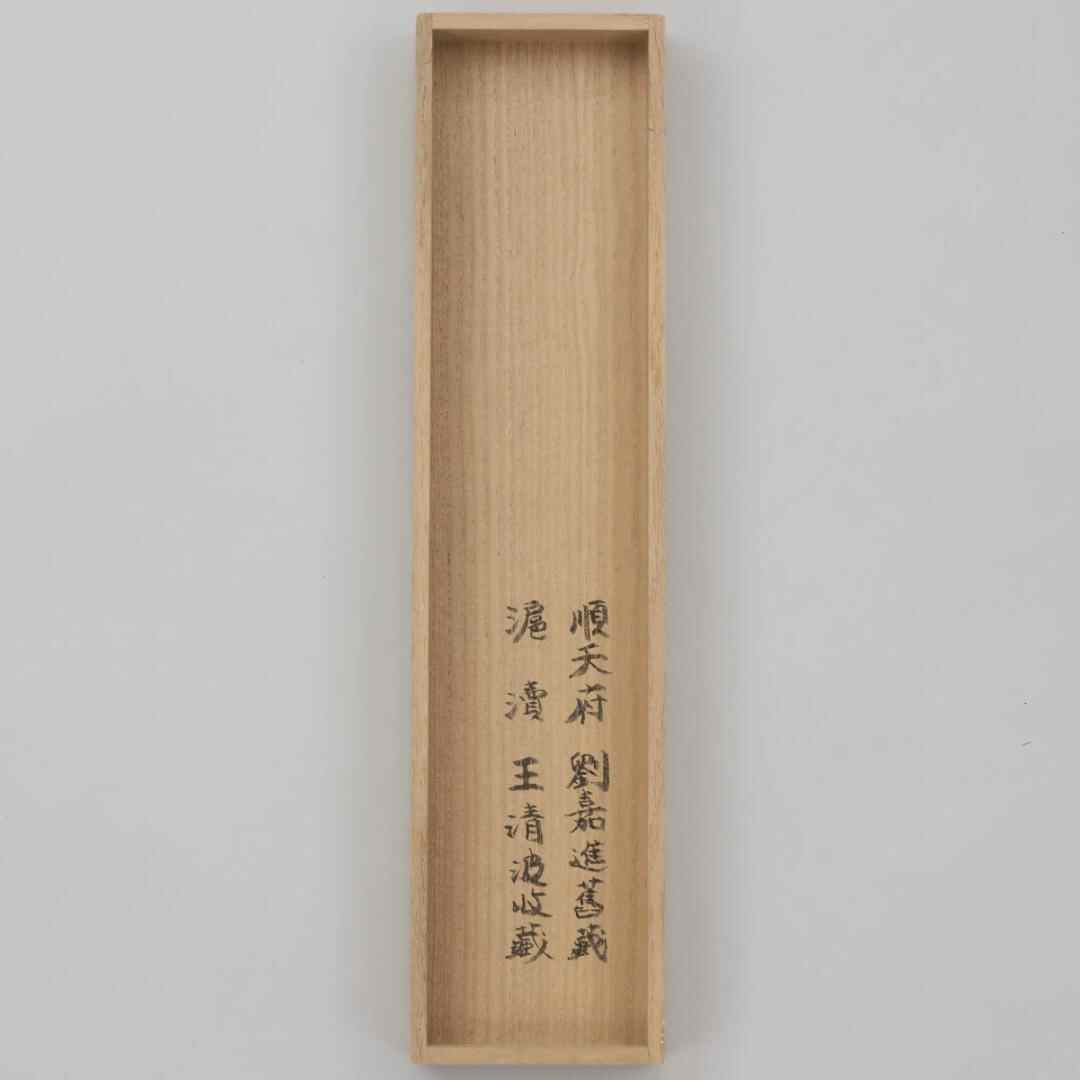 順天府 劉嘉進舊藏
滬瀆 王清波收藏